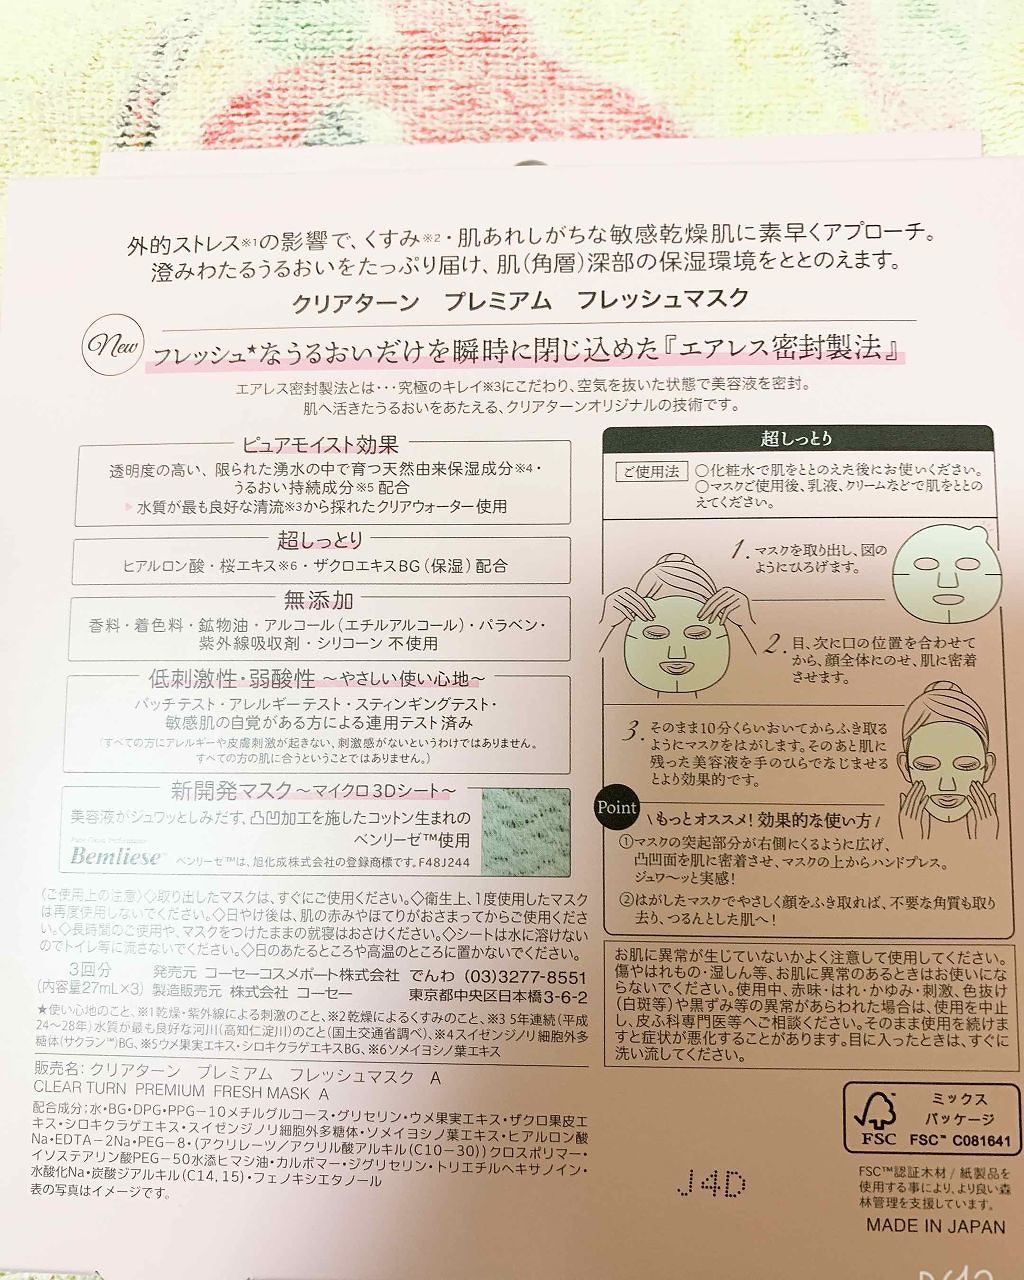 外的ストレス※1の影響で、くすみ※2・肌あれしがちな敏感乾燥肌に素早くアプローチ。
澄みわたるうるおいをたっぷり届け、肌(角層)深部の保湿環境をととのえます。
クリアターン プレミアム フレッシュマスク
New
フレッシュ★なうるおいだけを瞬時に閉じ込めた『エアレス密封製法』
エアレス密封製法とは・・・究極のキレイ※3にこだわり、空気を抜いた状態で美容液を密封。
肌へ活きたうるおいをあたえる、クリアターンオリジナルの技術です。
ピュアモイスト効果
透明度の高い、限られた湧水の中で育つ天然由来保湿成分※4・
うるおい持続成分※5 配合
▶水質が最も良好な清流※3から採れたクリアウォーター使用
超しっとり
ヒアルロン酸・桜エキス※6・ザクロエキスBG(保湿)配合
無添加
香料・着色料・鉱物油・アルコール(エチルアルコール)・パラベン・
紫外線吸収剤・シリコーン 不使用
低刺激性・弱酸性 ～やさしい使い心地～
パッチテスト・アレルギーテスト・スティンギングテスト・
敏感肌の自覚がある方による連用テスト済み
(すべての方にアレルギーや皮膚刺激が起きない、刺激感がないというわけではありません。
すべての方の肌に合うということではありません。)
新開発マスク～マイクロ3Dシート～
美容液がジュワッとしみだす、凸凹加工を施したコットン生まれの
ベンリーゼ™使用
Bemliese™ ベンリーゼ™は、旭化成株式会社の登録商標です。F48J244
(ご使用上の注意)◇取り出したマスクは、すぐにご使用ください。◇衛生上、1度使用したマスク
は再度使用しないでください。◇日やけ後は、肌の赤みやほてりがおさまってからご使用くださ
い。◇長時間のご使用や、マスクをつけたままの就寝はおさけください。◇シートは水に溶けない
のでトイレ等に流さないでください。◇日のあたるところや高温のところに置かないでください。
3回分 発売元 コーセーコスメポート株式会社 でんわ (03)3277-8551
(内容量27mL×3) 製造販売元 株式会社 コーセー 東京都中央区日本橋3-6-2
★使い心地のこと、※1乾燥・紫外線による刺激のこと、※2乾燥によるくすみのこと、※3 5年連続(平成
24～28年)水質が最も良好な河川(高知仁淀川)のこと(国土交通省調べ)、※4スイゼンジノリ細胞外多
糖体(サクラン™)BG、※5ウメ果実エキス・シロキクラゲエキスBG、※6ソメイヨシノ葉エキス
販売名: クリアターン プレミアム フレッシュマスク A
CLEAR TURN PREMIUM FRESH MASK A
配合成分;水・BG・DPG・PPG－10メチルグルコース・グリセリン・ウメ果実エキス・ザクロ果皮エ
キス・シロキクラゲエキス・スイゼンジノリ細胞外多糖体・ソメイヨシノ葉エキス・ヒアルロン酸
Na・EDTA－2Na・PEG－8・(アクリレーツ/アクリル酸アルキル(C10－30))クロスポリマー・
イソステアリン酸PEG－50水添ヒマシ油・カルボマー・ジグリセリン・トリエチルヘキサノイン・
水酸化Na・炭酸ジアルキル(C14,15)・フェノキシエタノール
表の写真はイメージです。
超しっとり
ご使用法 ○化粧水で肌をととのえた後にお使いください。
○マスクご使用後、乳液、クリームなどで肌をととの
えてください。
1.マスクを取り出し、図の
ようにひろげます。
2.目、次に口の位置を合わせて
から、顔全体にのせ、肌に密着
させます。
3.そのまま10分くらいおいてからふき取る
ようにマスクをはがします。そのあと肌に
残った美容液を手のひらでなじませる
とより効果的です。
Point \もっとオススメ!効果的な使い方/
①マスクの突起部分が右側にくるように広げ、
凸凹面を肌に密着させ、マスクの上からハンドプレス。
ジュワ～ッと実感!
②はがしたマスクでやさしく顔をふき取れば、不要な角質も取り
去り、つるんとした肌へ!
お肌に異常が生じていないかよく注意して使用してください。
傷やはれもの・湿しん等、お肌に異常のあるときはお使いにな
らないでください。使用中、赤味・はれ・かゆみ・刺激、色抜け
(白斑等)や黒ずみ等の異常があらわれた場合は、使用を中止
し、皮ふ科専門医等へご相談ください。そのまま使用を続けま
すと症状が悪化することがあります。目に入ったときは、すぐに
洗い流してください。
FSC
ミックス
パッケージ
FSC™ C081641
FSC™認証木材/紙製品を
使用する事により、より良い森
林管理を支援しています。
MADE IN JAPAN
J4D